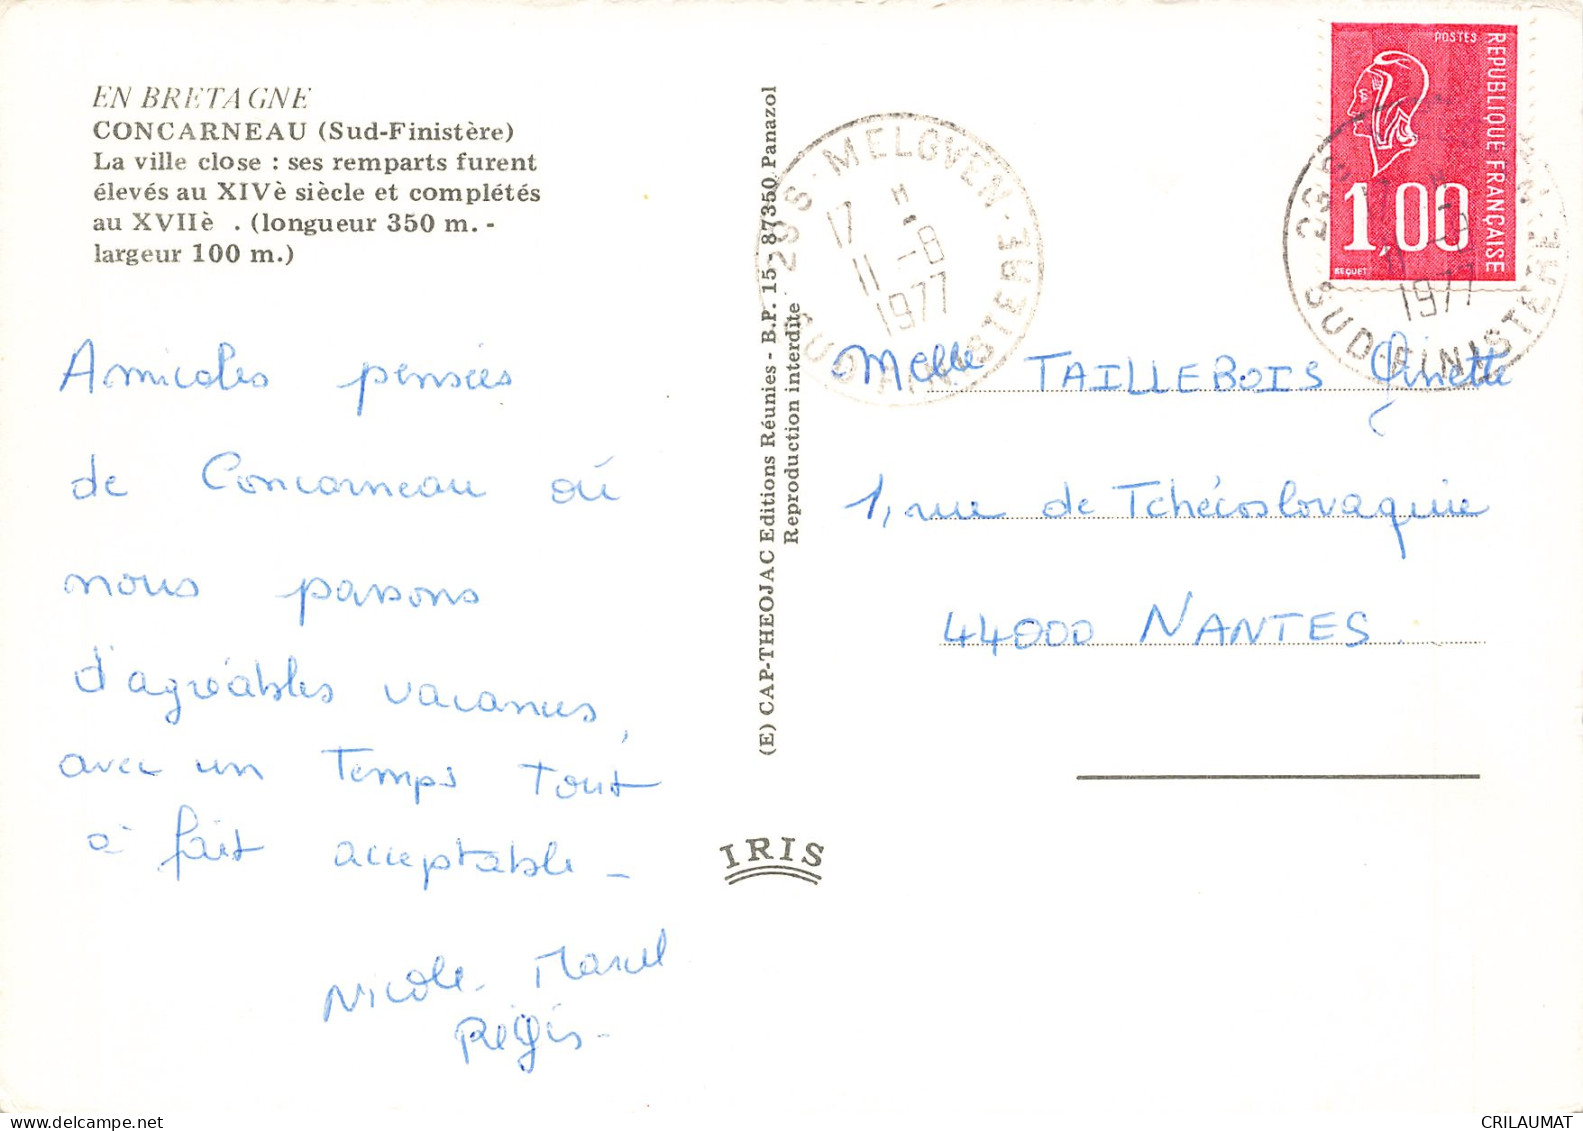 EN BRETAGNE
CONCARNEAU (Sud-Finistère)
La ville close : ses remparts furent
élevés au XIVè siècle et complétés
au XVIIè . (longueur 350 m. -
largeur 100 m.)
Amicales pensées
de Concarneau où
nous passons
d'agréables vacances,
avec un Temps Tout
à fait acceptable _
Nicole - Marcel
Régis -
(E) CAP-THEOJAC Editions Réunies - B.P. 15 - 87350 Panazol
Reproduction interdite
IRIS
29 S - MELGVEN - SUD-FINISTERE
17 H
11 -8
1977
POSTES
REPUBLIQUE FRANÇAISE
1,00
BEQUET
29 S
SUD-FINISTERE
17 H
11 -8
1977
Melle TAILLEBOIS Ginette
1, rue de Tchécoslovaquie
44000 NANTES.
CRILAUMAT